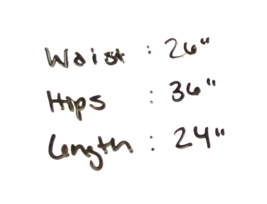 Waist : 26"
Hips : 36"
Length : 24"